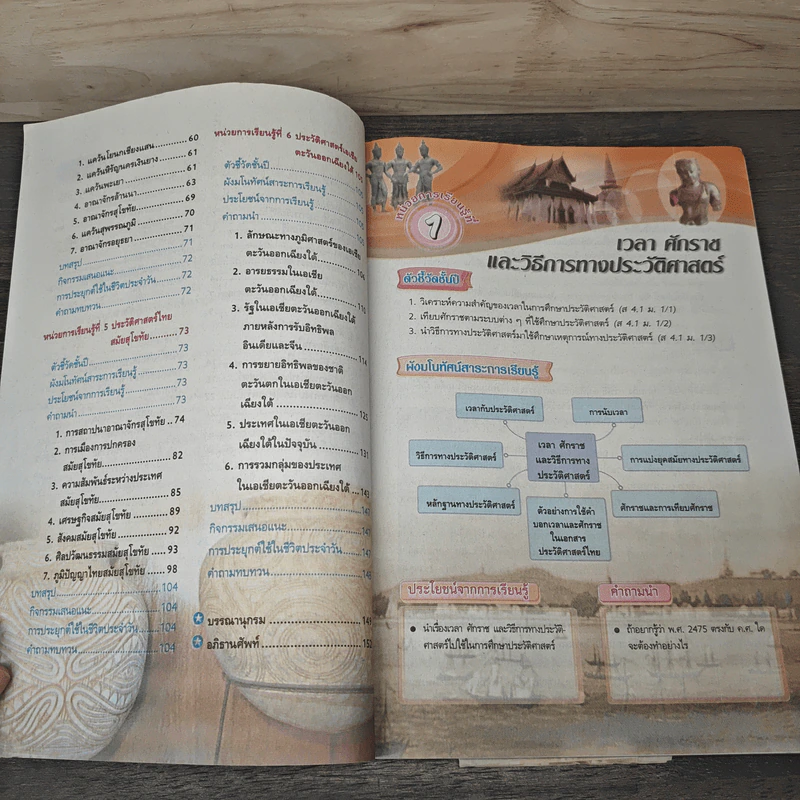 1. แคว้นโยนกเชียงแสน............ 60
2. แคว้นหิรัญนครเงินยาง ........ 61
3. แคว้นพะเยา ...................... 61
4. อาณาจักรล้านนา................ 63
5. อาณาจักรสุโขทัย................ 69
6. แคว้นสุพรรณภูมิ ................ 70
7. อาณาจักรอยุธยา ................ 71
บทสรุป................................ 71
กิจกรรมเสนอแนะ.................. 72
การประยุกต์ใช้ในชีวิตประจำวัน... 72
คำถามทบทวน ...................... 72
หน่วยการเรียนรู้ที่ 5 ประวัติศาสตร์ไทย
สมัยสุโขทัย................ 73
ตัวชี้วัดชั้นปี........................ 73
ผังมโนทัศน์สาระการเรียนรู้....... 73
ประโยชน์จากการเรียนรู้........... 73
คำถามนำ ............................ 73
1. การสถาปนาอาณาจักรสุโขทัย .. 74
2. การเมืองการปกครอง
สมัยสุโขทัย........................ 82
3. ความสัมพันธ์ระหว่างประเทศ
สมัยสุโขทัย........................ 85
4. เศรษฐกิจสมัยสุโขทัย .......... 89
5. สังคมสมัยสุโขทัย................ 92
6. ศิลปวัฒนธรรมสมัยสุโขทัย .... 93
7. ภูมิปัญญาไทยสมัยสุโขทัย ..... 98
บทสรุป................................ 104
กิจกรรมเสนอแนะ.................. 104
การประยุกต์ใช้ในชีวิตประจำวัน... 104
คำถามทบทวน ...................... 104
หน่วยการเรียนรู้ที่ 6 ประวัติศาสตร์เอเชีย
ตะวันออกเฉียงใต้
ตัวชี้วัดชั้นปี........................
ผังมโนทัศน์สาระการเรียนรู้.......
ประโยชน์จากการเรียนรู้...........
คำถามนำ ............................
1. ลักษณะทางภูมิศาสตร์ของเอเชีย
ตะวันออกเฉียงใต้................
2. อารยธรรมในเอเชีย
ตะวันออกเฉียงใต้................
3. รัฐในเอเชียตะวันออกเฉียงใต้
ภายหลังการรับอิทธิพล
อินเดียและจีน .................... 114
4. การขยายอิทธิพลของชาติ
ตะวันตกในเอเชียตะวันออก
เฉียงใต้ ............................
5. ประเทศในเอเชียตะวันออก
เฉียงใต้ในปัจจุบัน ................ 131
6. การรวมกลุ่มของประเทศ
ในเอเชียตะวันออกเฉียงใต้ ...
บทสรุป................................
กิจกรรมเสนอแนะ..................
การประยุกต์ใช้ในชีวิตประจำวัน...
คำถามทบทวน ......................
บรรณานุกรม ........................
อภิธานศัพท์ ........................ 152
หน่วยการเรียนรู้ที่
1
เวลา ศักราช
และวิธีการทางประวัติศาสตร์
ตัวชี้วัดชั้นปี
1. วิเคราะห์ความสำคัญของเวลาในการศึกษาประวัติศาสตร์ (ส 4.1 ม. 1/1)
2. เทียบศักราชตามระบบต่าง ๆ ที่ใช้ศึกษาประวัติศาสตร์ (ส 4.1 ม. 1/2)
3. นำวิธีการทางประวัติศาสตร์มาใช้ศึกษาเหตุการณ์ทางประวัติศาสตร์ (ส 4.1 ม. 1/3)
ผังมโนทัศน์สาระการเรียนรู้
เวลากับประวัติศาสตร์
การนับเวลา
วิธีการทางประวัติศาสตร์
เวลา ศักราช
และวิธีการทาง
ประวัติศาสตร์
การแบ่งยุคสมัยทางประวัติศาสตร์
หลักฐานทางประวัติศาสตร์
ตัวอย่างการใช้คำ
บอกเวลาและศักราช
ในเอกสาร
ประวัติศาสตร์ไทย
ศักราชและการเทียบศักราช
ประโยชน์จากการเรียนรู้
คำถามนำ
● นำเรื่องเวลา ศักราช และวิธีการทางประวัติ-
ศาสตร์ไปใช้ในการศึกษาประวัติศาสตร์
● ถ้าอยากรู้ว่า พ.ศ. 2475 ตรงกับ ค.ศ. ใด
จะต้องทำอย่างไร